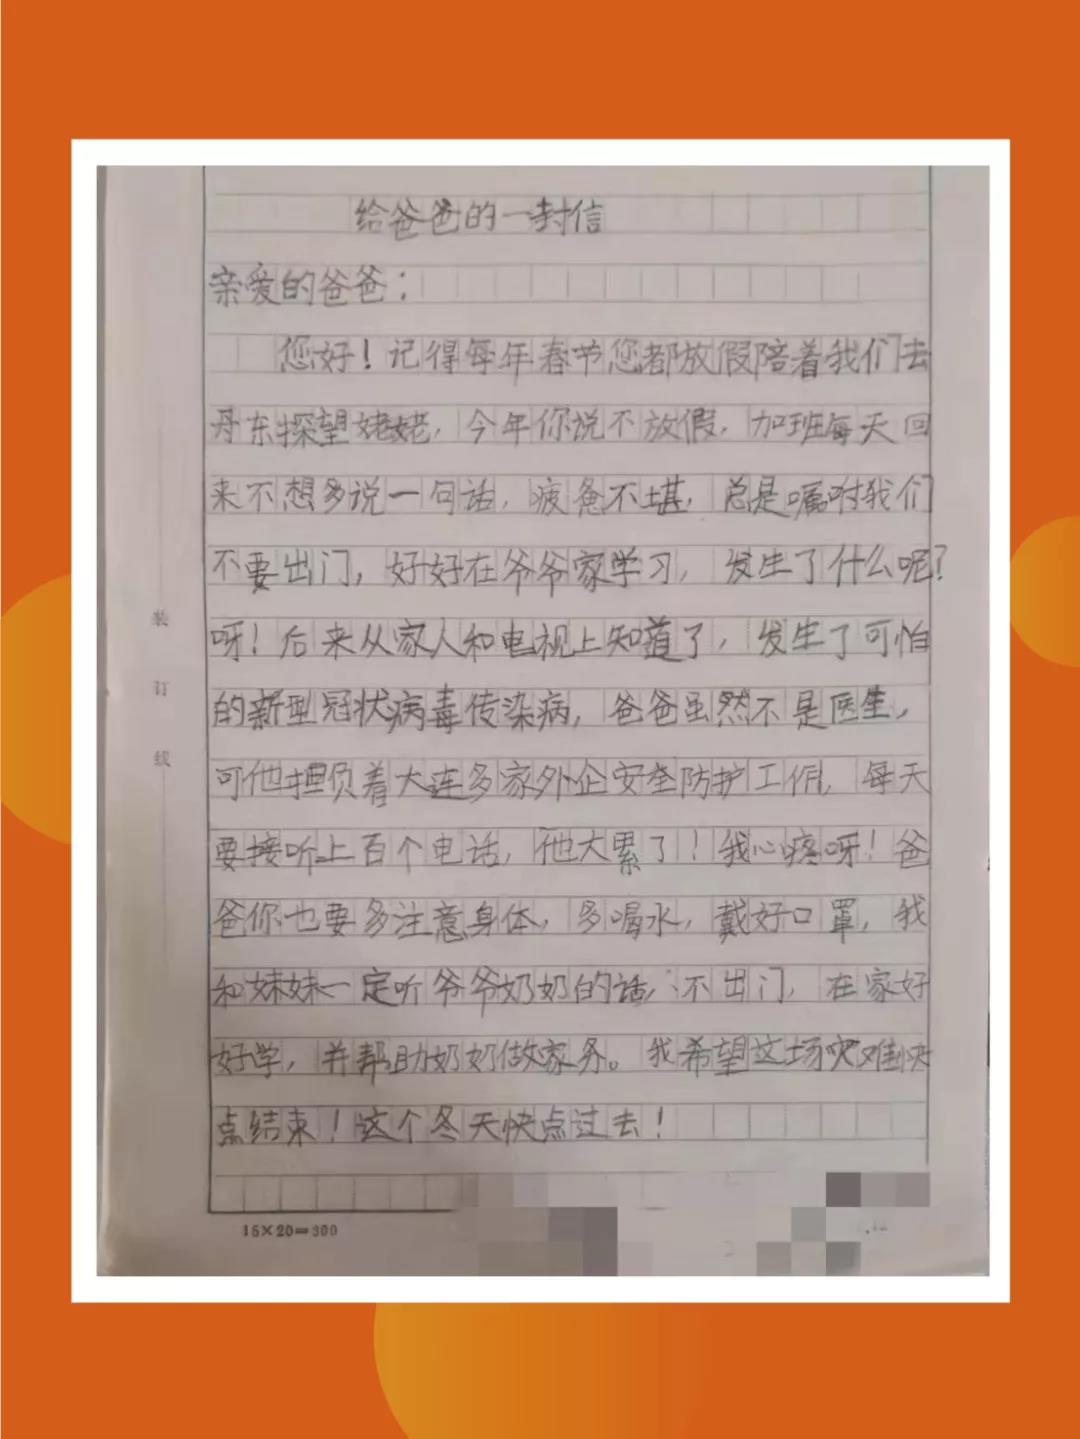 给爸爸的一封信
亲爱的爸爸：
您好！记得每年春节您都放假陪着我们去
丹东探望姥姥，今年你说不放假，加班每天回
来不想多说一句话，疲惫不堪，总是嘱咐我们
不要出门，好好在爷爷家学习，发生了什么呢？
呀！后来从家人和电视上知道了，发生了可怕
的新型冠状病毒传染病，爸爸虽然不是医生，
可他担负着大连多家外企安全防护工作，每天
要接听上百个电话，他大累了！我心疼呀！爸
爸你也要多注意身体，多喝水，戴好口罩，我
和妹妹一定听爷爷奶奶的话，不出门，在家好
好学，并帮助奶奶做家务。我希望这场灾难快
点结束！这个冬天快点过去！
装
订
线
15×20=300